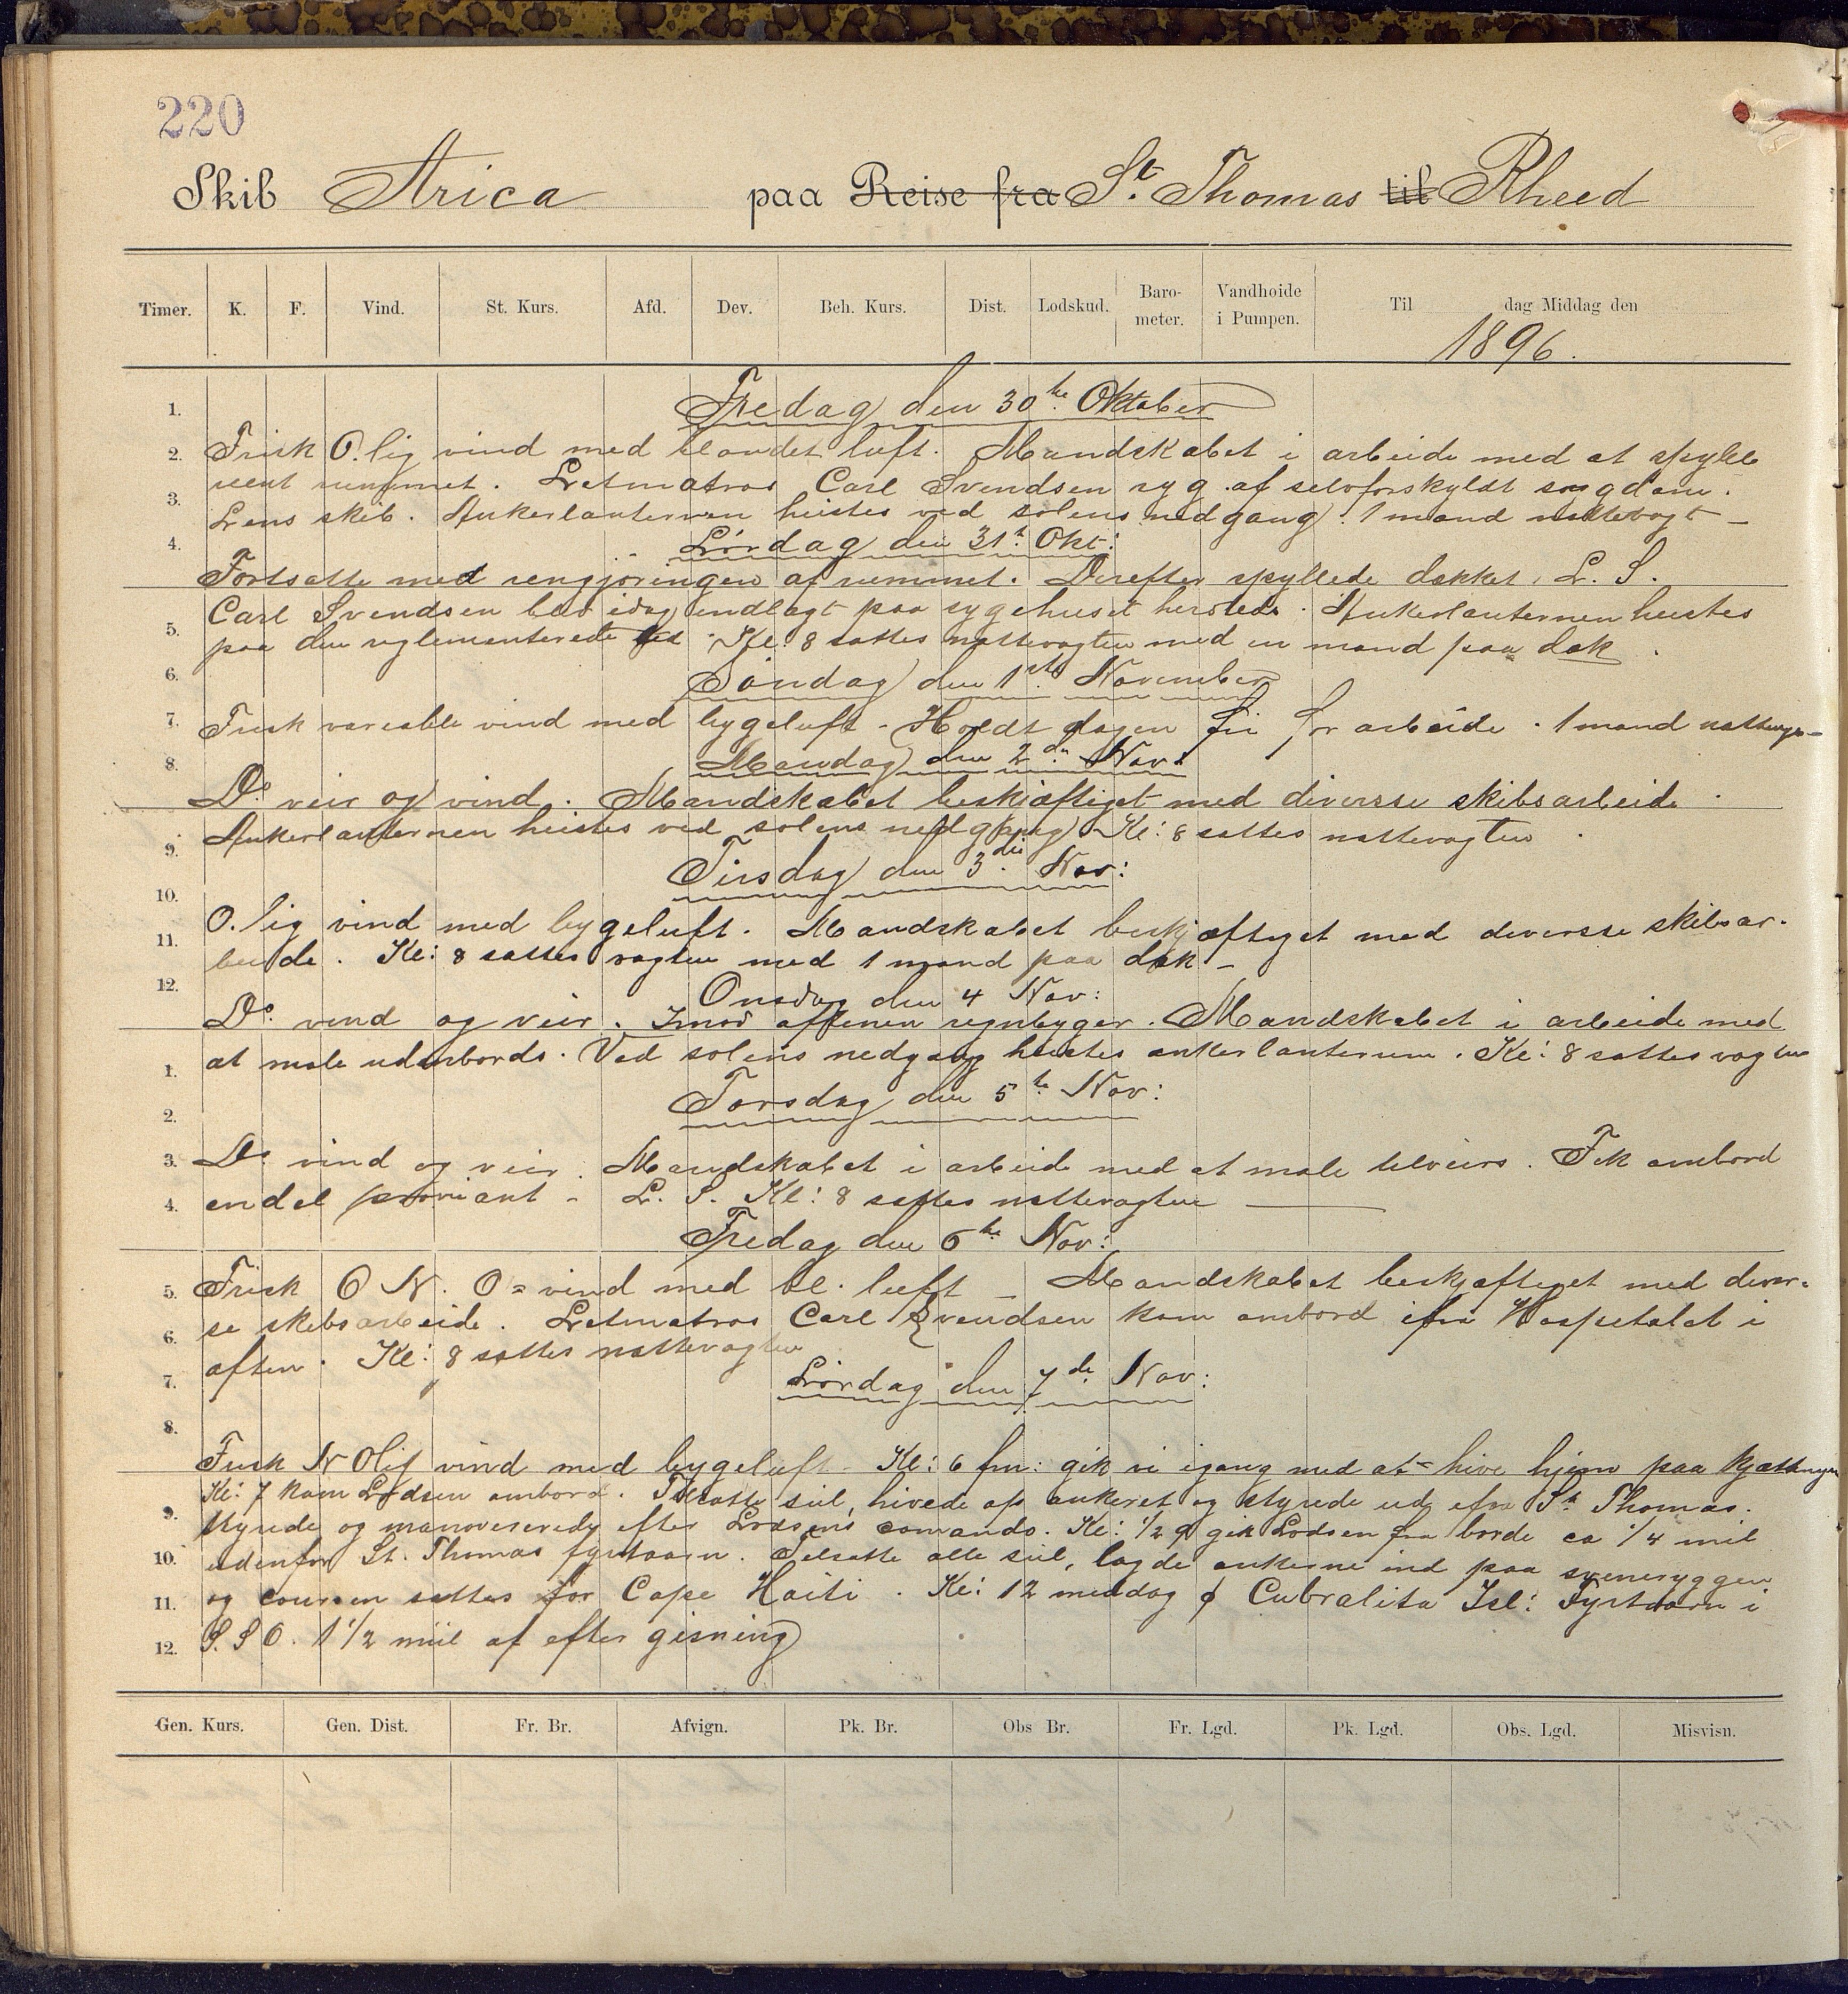 220
Skib Arica paa Reise fra St. Thomas til Rheed
Timer. K. F. Vind. St. Kurs. Afd. Dev. Beh. Kurs. Dist. Lodskud. Barometer. Vandhoide i Pumpen. Til dag Middag den
1896.
1. Fredag den 30te Oktober
2. Frisk O.lig vind med blandet luft. Mandskabet i arbeide med at spylle
3. rent rummet. Letmatros Carl Svendsen syg af selvforskyldt sygdom.
Lens skib. Ankerlanternen heistes ved solens nedgang. 1 mand nattevagt –
4. Lördag den 31t Okt:
Fortsatte med rengjøringen af rummet. Derefter spyllede dækket. L. S.
5. Carl Svendsen blev idag indlagt paa sygehuset herstede. Ankerlanternen heistes
paa den reglementerede tid. Kl: 8 sattes nattevagten med en mand paa dæk.
6. Søndag den 1ste November
7. Frisk variable vind med bygeluft – Holdt dagen fri for arbeide. 1 mand
8. Mandag den 2den Nov:
Do. veir og vind. Mandskabet beskjæftiget med diversse skibsarbeide.
9. Ankerlanternen heistes ved solens nedgang. Kl: 8 sattes nattevagten
Tirsdag den 3die Nov:
10.
11. O. lig vind med bygeluft. Mandskabet beskjæftiget med diversse skibsar-
beide. Kl: 8 sattes vagten med 1 mand paa dæk –
12. Onsdag den 4 Nov:
Do. vind og veir. Imod aftenen regnbyger. Mandskabet i arbeide med
1. at male udenbords. Ved solens nedgang heistes ankerlanternen. Kl: 8 sattes vagten
2. Torsdag den 5te Nov:
3. Do vind og veir. Mandskabet i arbeide med at male tilveirs. Fik ombord
4. endel proviant – L. S. Kl: 8 sattes nattevagten
Fredag den 6te Nov:
5. Frisk O N. O = vind med bl. luft – Mandskabet beskjæftiget med diver-
6. se skibsarbeide. Letmatros Carl Svendsen kom ombord ifra Hospitalet i
aften. Kl: 8 sattes nattevagten
7. Lördag den 7de Nov:
8.
Frisk N Olig vind med bygeluft – Kl: 6 fm: gik vi igang med at hive hjem paa kjættingen
Kl: 7 kom Lodsen ombord. Tilsatte seil, hivede op ankeret og styrede ud ifra St. Thomas.
9. Styrede og manovererede efter Lodsens comando. Kl: 1/2 9 gik Lodsen fra borde ca 1/4 mil
10. udenfor St. Thomas fyrtaarn. Tilsatte alle seil, lagde ankerne ind paa svineryggen
11. og coursen sattes for Cape Haiti. Kl: 12 middag Cubralita Isl: Fyrtaarn i
12. S. S O. 1 1/2 miil af efter gisning
Gen. Kurs. Gen. Dist. Fr. Br. Afvign. Pk. Br. Obs Br. Fr. Lgd. Pk. Lgd. Obs. Lgd. Misvisn.